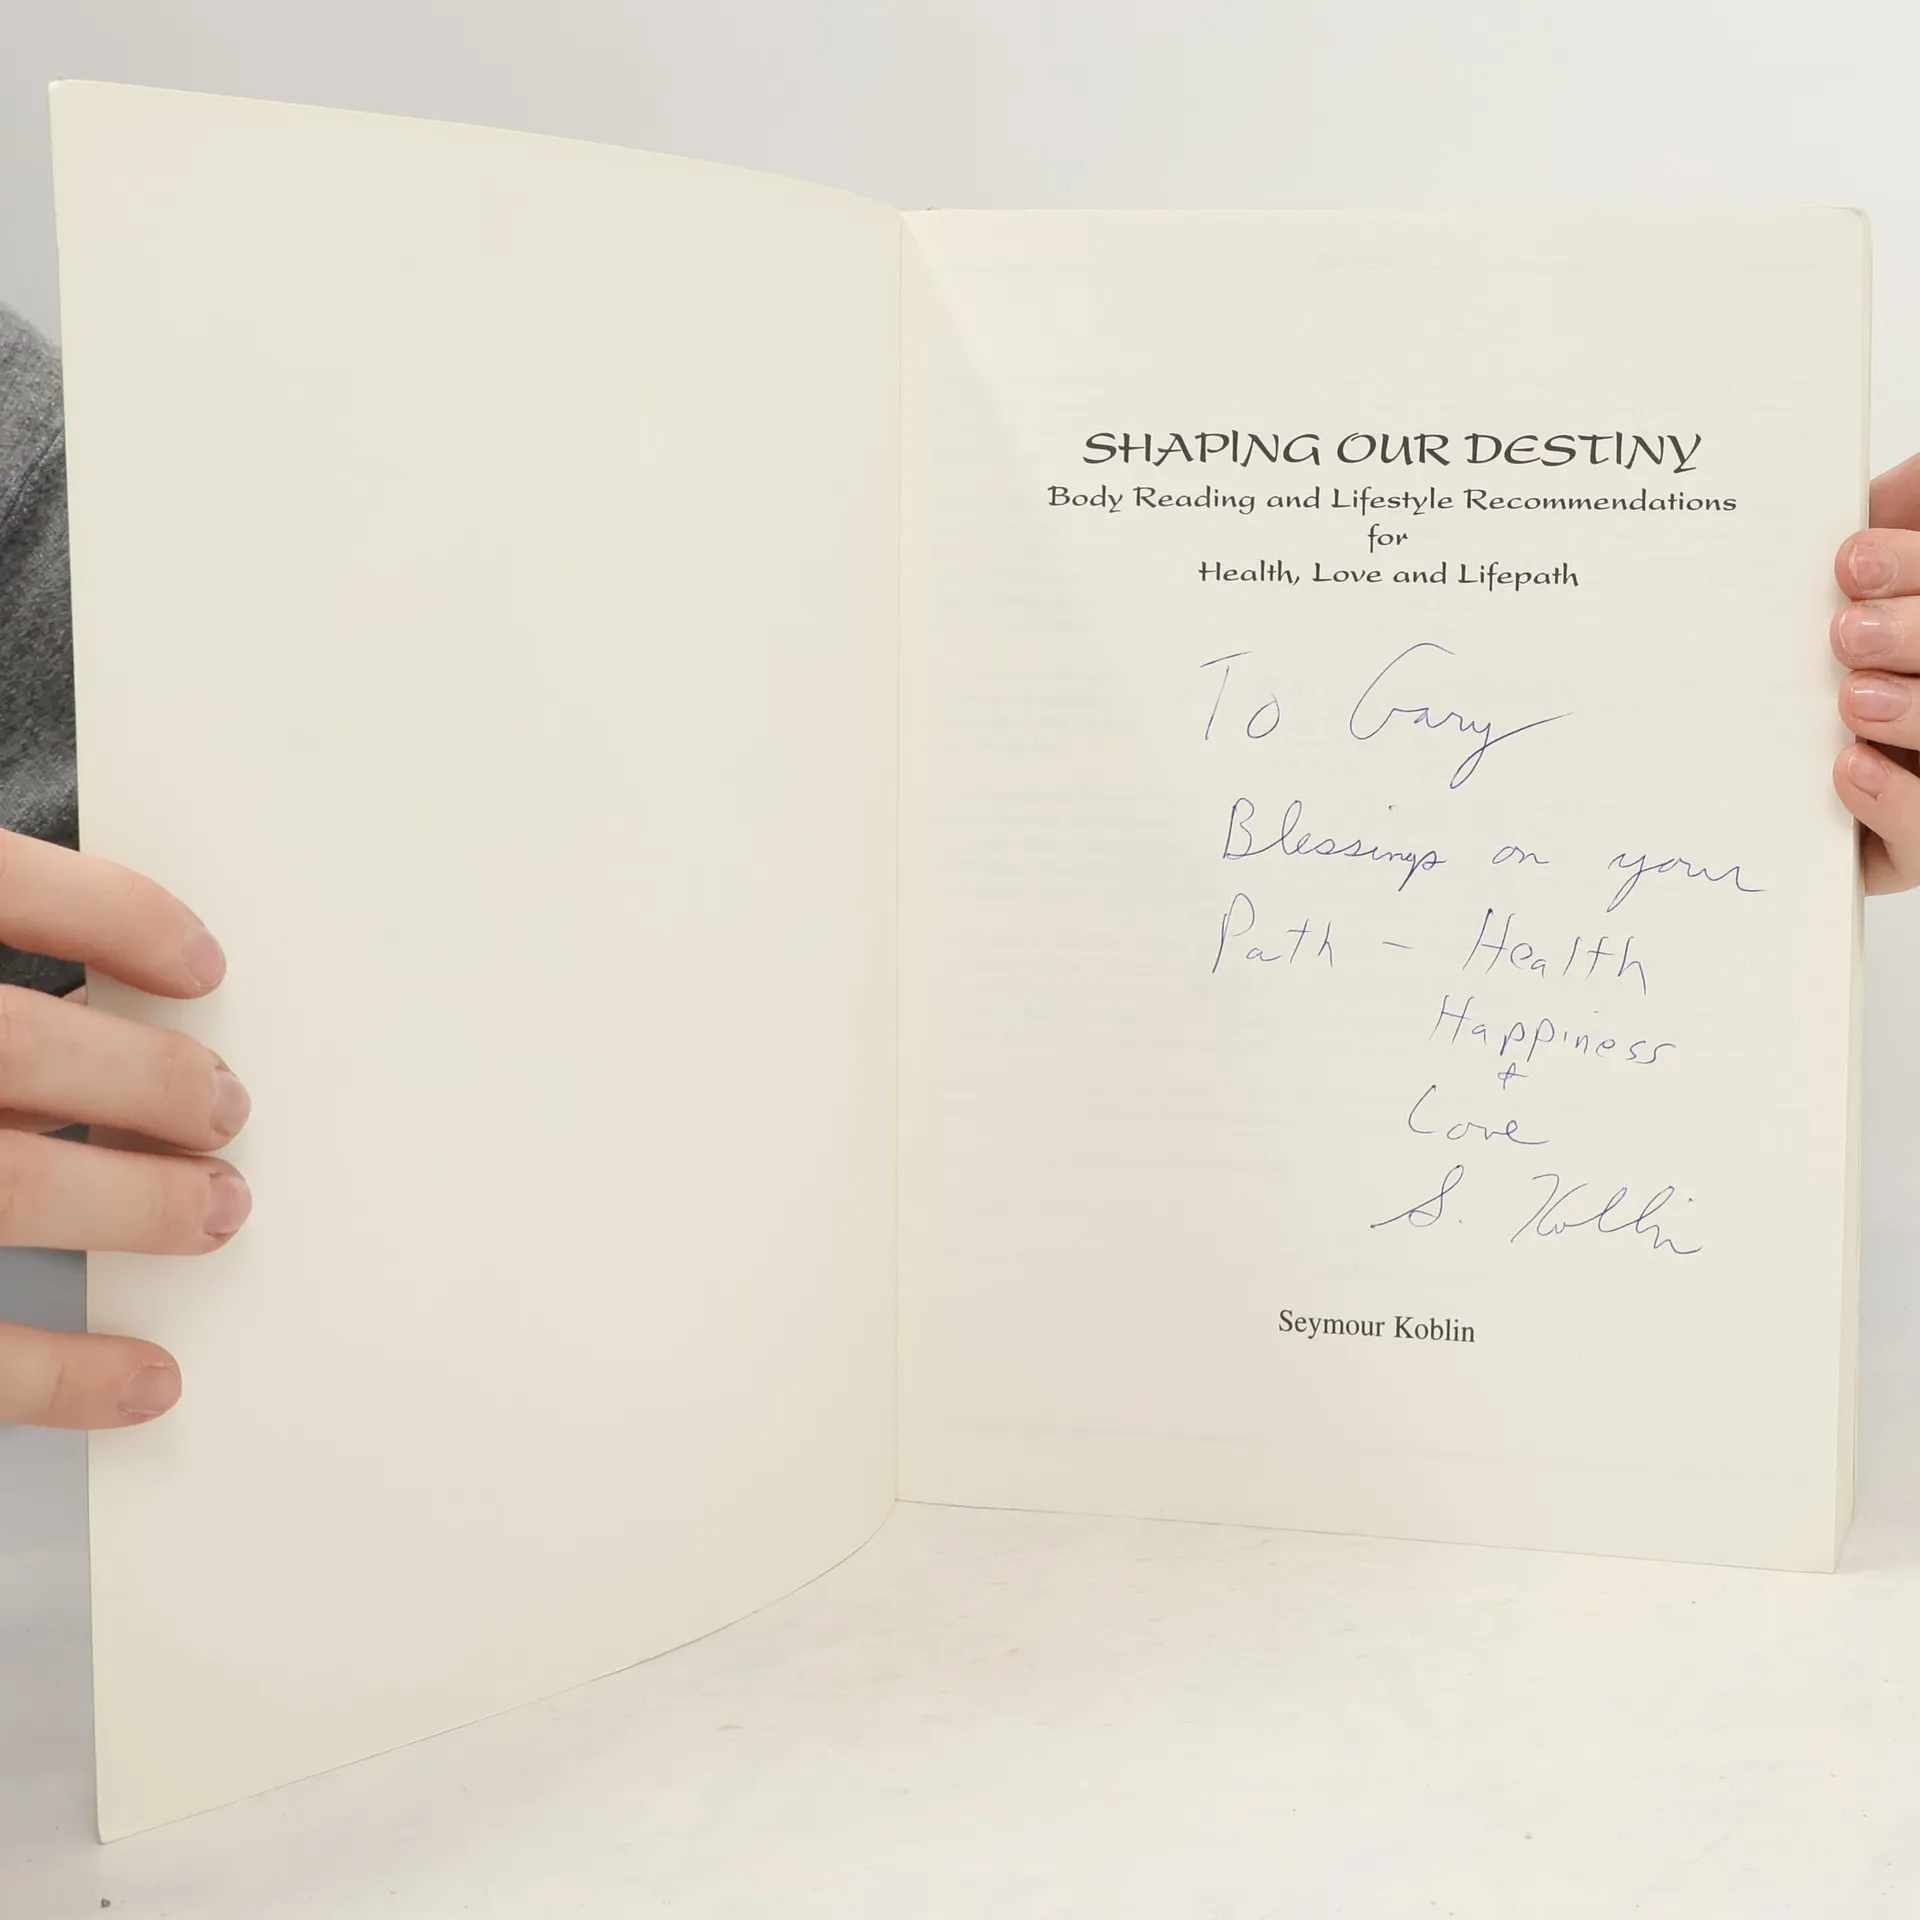 SHAPING OUR DESTINY
Body Reading and Lifestyle Recommendations
for
Health, Love and Lifepath
To Gary
Blessings on your
Path – Health
Happiness
+
Love
S. Koblin
Seymour Koblin